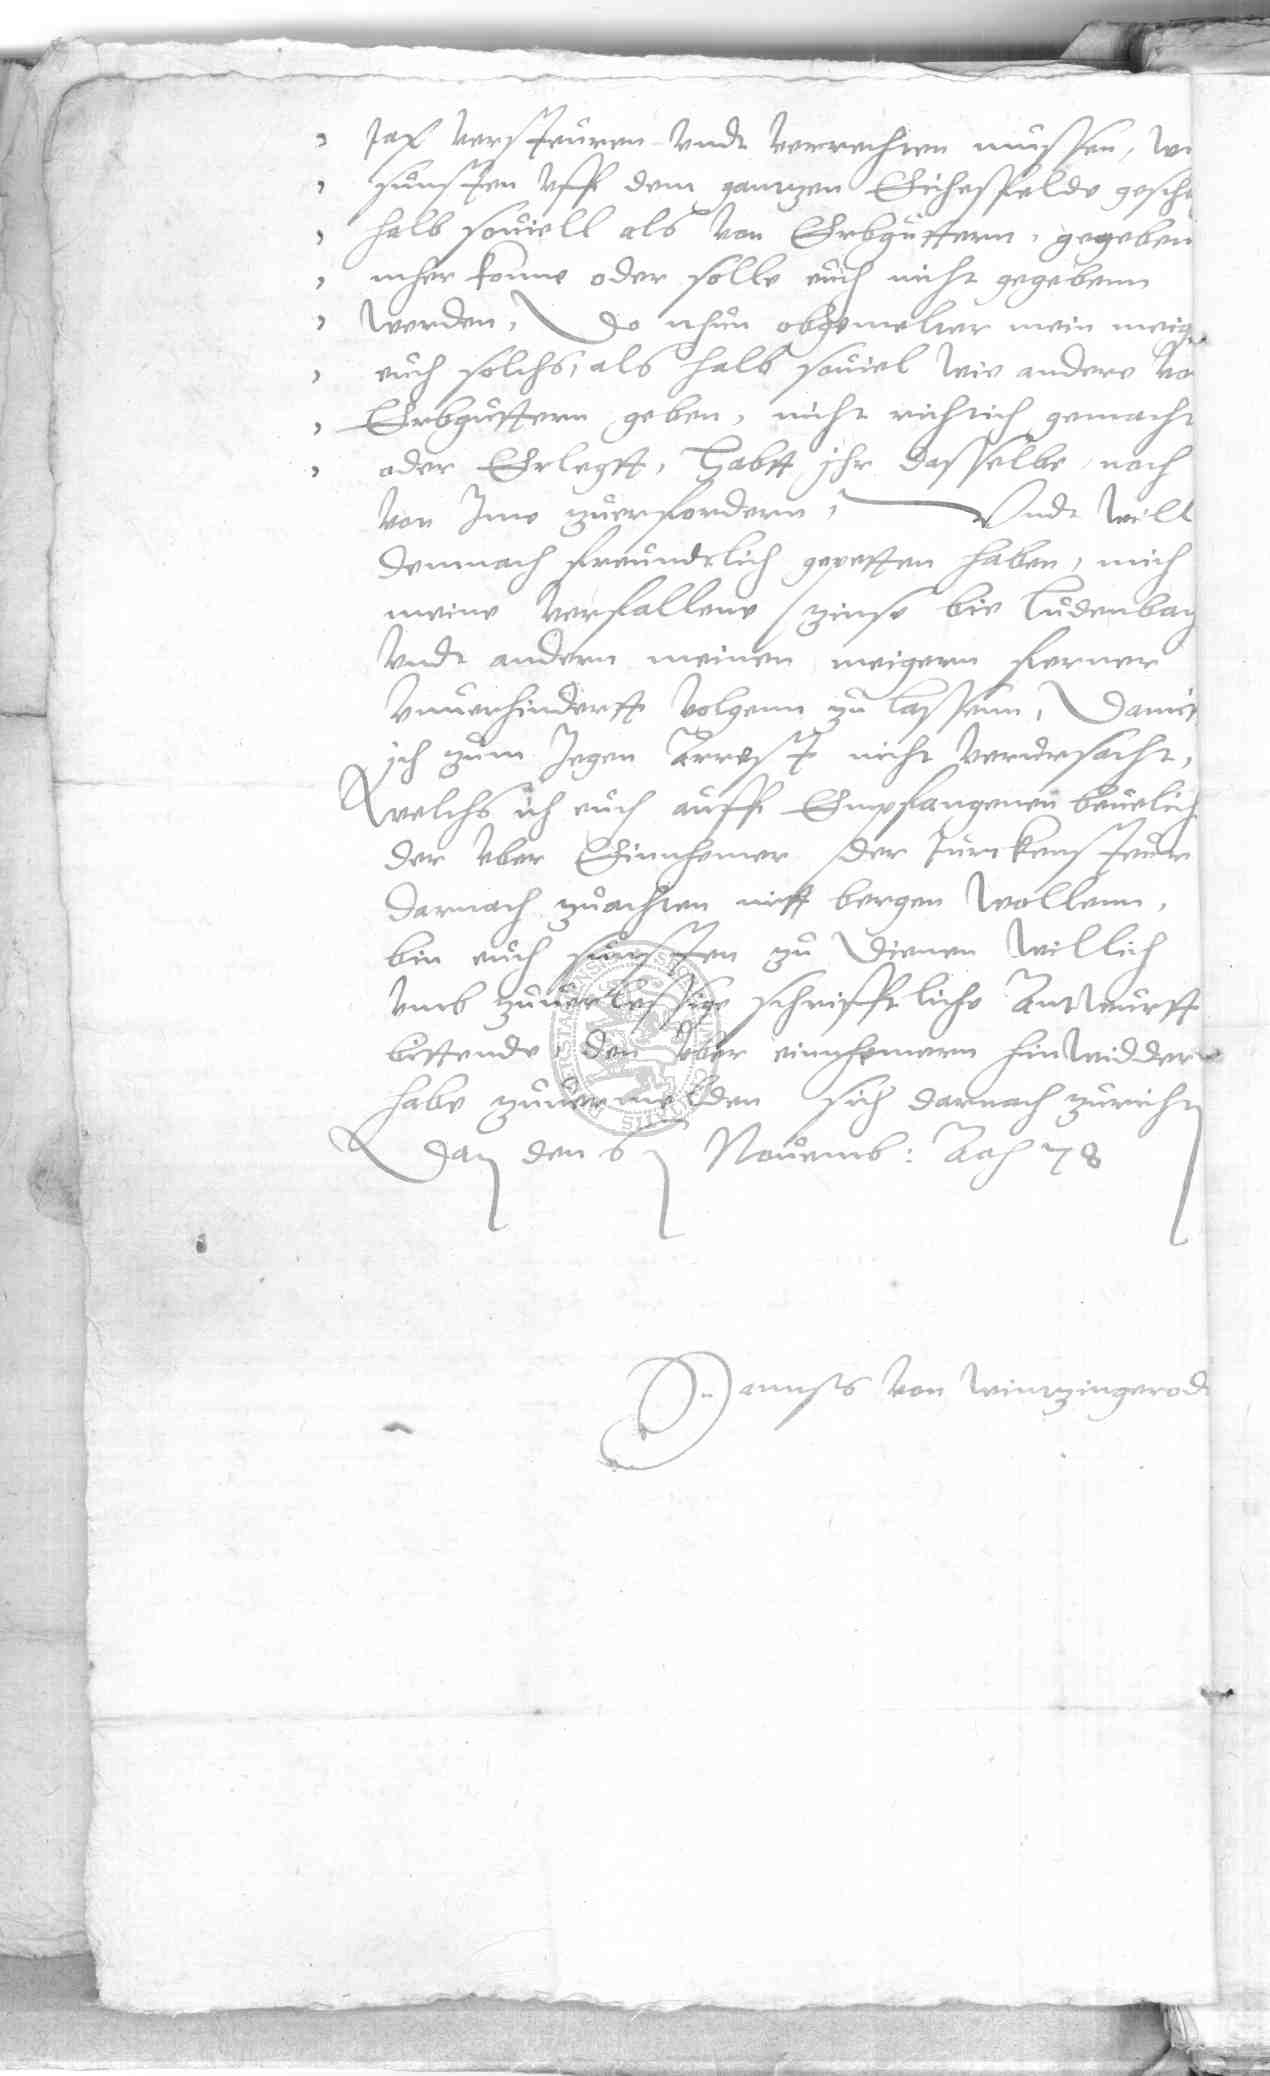 Jaß versteuren vndt verrechten mussen, wi
sunsten vff dem gantzen Eichesfelde gesche
halb souiell als von Erbguttern, gegeben
mher konne oder solle euch nicht gegebenn
werden, Do nhun obgemelter mein meig
euch solchs, als halb souiel wie andere vo
Erbguttern geben, nicht richtich gemacht
oder Erlegtt, Habtt jhr dasselbe noch
von Ime zuerfordern, Vndt will
demnach freundtlich gepetten haben, mich
meine verfallene zinse bie Ludenbag
vndt andern meinen meigern ferner
vnuerhindertt volgenn zu lassenn, Damit
ich zum Jegen Arrest nicht verursacht,
welchs ich euch auff Empfangenen beuelich
der vber Einnhemer der Turckensteur
darnach zuachten nicht bergen wollenn,
bin euch sunsten zu dienen willich
vmb zuuerlessige schrifftliche Antwurtt
bittende, den vber einnhemern hinwidder
habe zuuermelden sich darnach zuricht
Dat den 6 Nouemb: 78
Hanns von wintzingerode
SIGILLUM